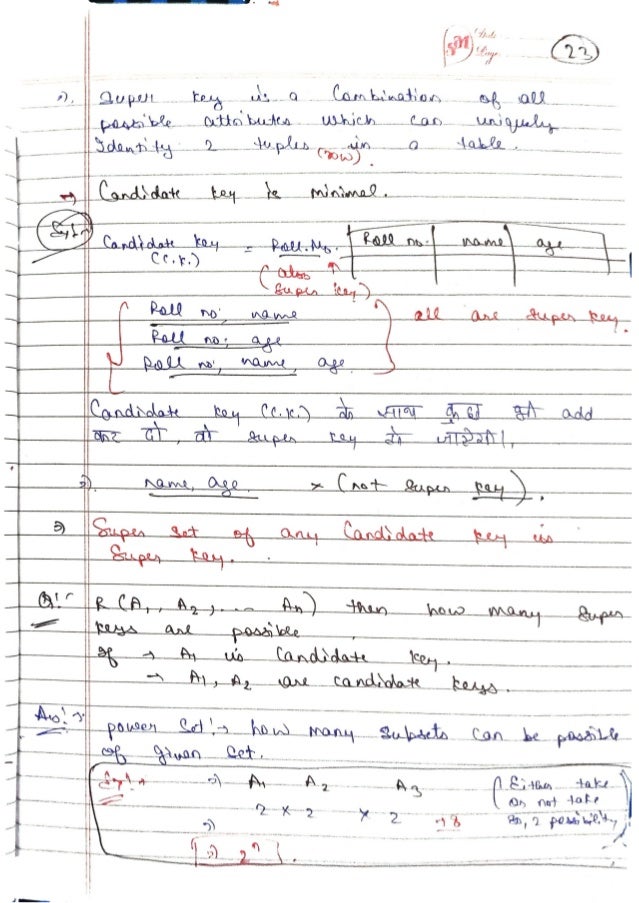 23
Super key is a Combination of all
possible attributes which can uniquely
Identity 2 tuples (row) in a table.
→ Candidate key is minimal.
Candidate key (C.K.) = Roll.No. (also Super key)
Roll no. name age
Roll no, name
Roll no, age
Roll no, name, age
all are super key.
Candidate key (C.K.) के साथ कुछ भी add
कर दो, तो super key हो जाऐगी।
name, age × (not super key).
Super set of any Candidate key is
Super key.
Q:- R (A1, A2, .... An) then how many Super
keys are possible
if → A1 is Candidate key.
→ A1, A2 are candidate keys.
Ans:- power set:- how many subsets can be possible
of given set.
⇒ A1 A2 A3
2 × 2 × 2 → 8
(Either take
or not take
so, 2 possibility)
⇒ 2ⁿ.